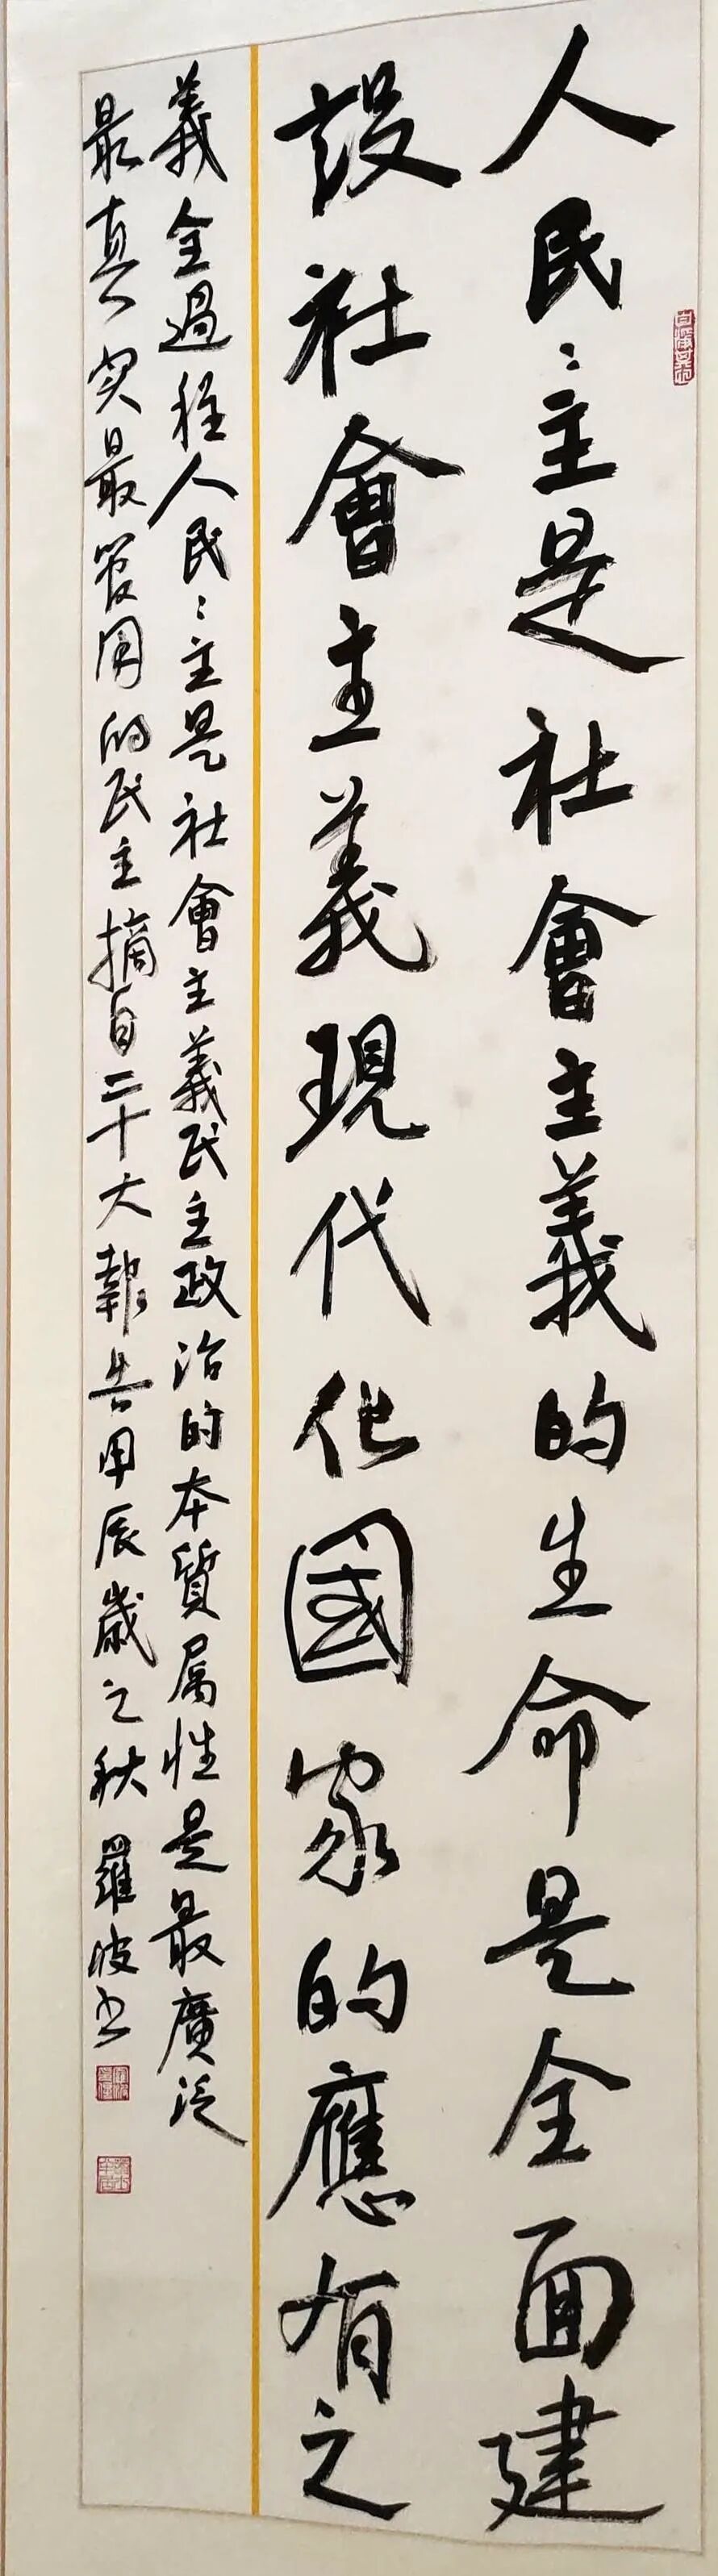 人民〻主是社會主義的生命是全面建
設社會主義現代化國家的應有之
義全過程人民〻主是社會主義民主政治的本質属性是最廣泛
最真实最管用的民主摘自二十大報告甲辰歲之秋羅波书